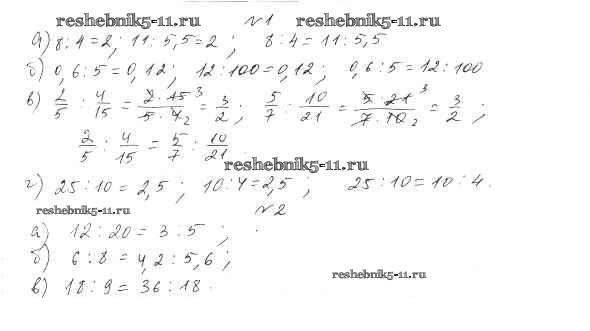 reshebnik5-11.ru №1 reshebnik5-11.ru
а) 8:4=2; 11:5,5=2; 8:4=11:5,5
б) 0,6:5=0,12; 12:100=0,12; 0,6:5=12:100
в) 2/5 : 4/15 = 2·15 3/5·4 2 = 3/2; 5/7 : 10/21 = 5·21 3/7·10 2 = 3/2;
2/5 : 4/15 = 5/7 : 10/21.
reshebnik5-11.ru
г) 25:10=2,5; 10:4=2,5; 25:10=10:4.
reshebnik5-11.ru №2
а) 12:20=3:5;
б) 6:8=4,2:5,6;
reshebnik5-11.ru
в) 18:9=36:18.